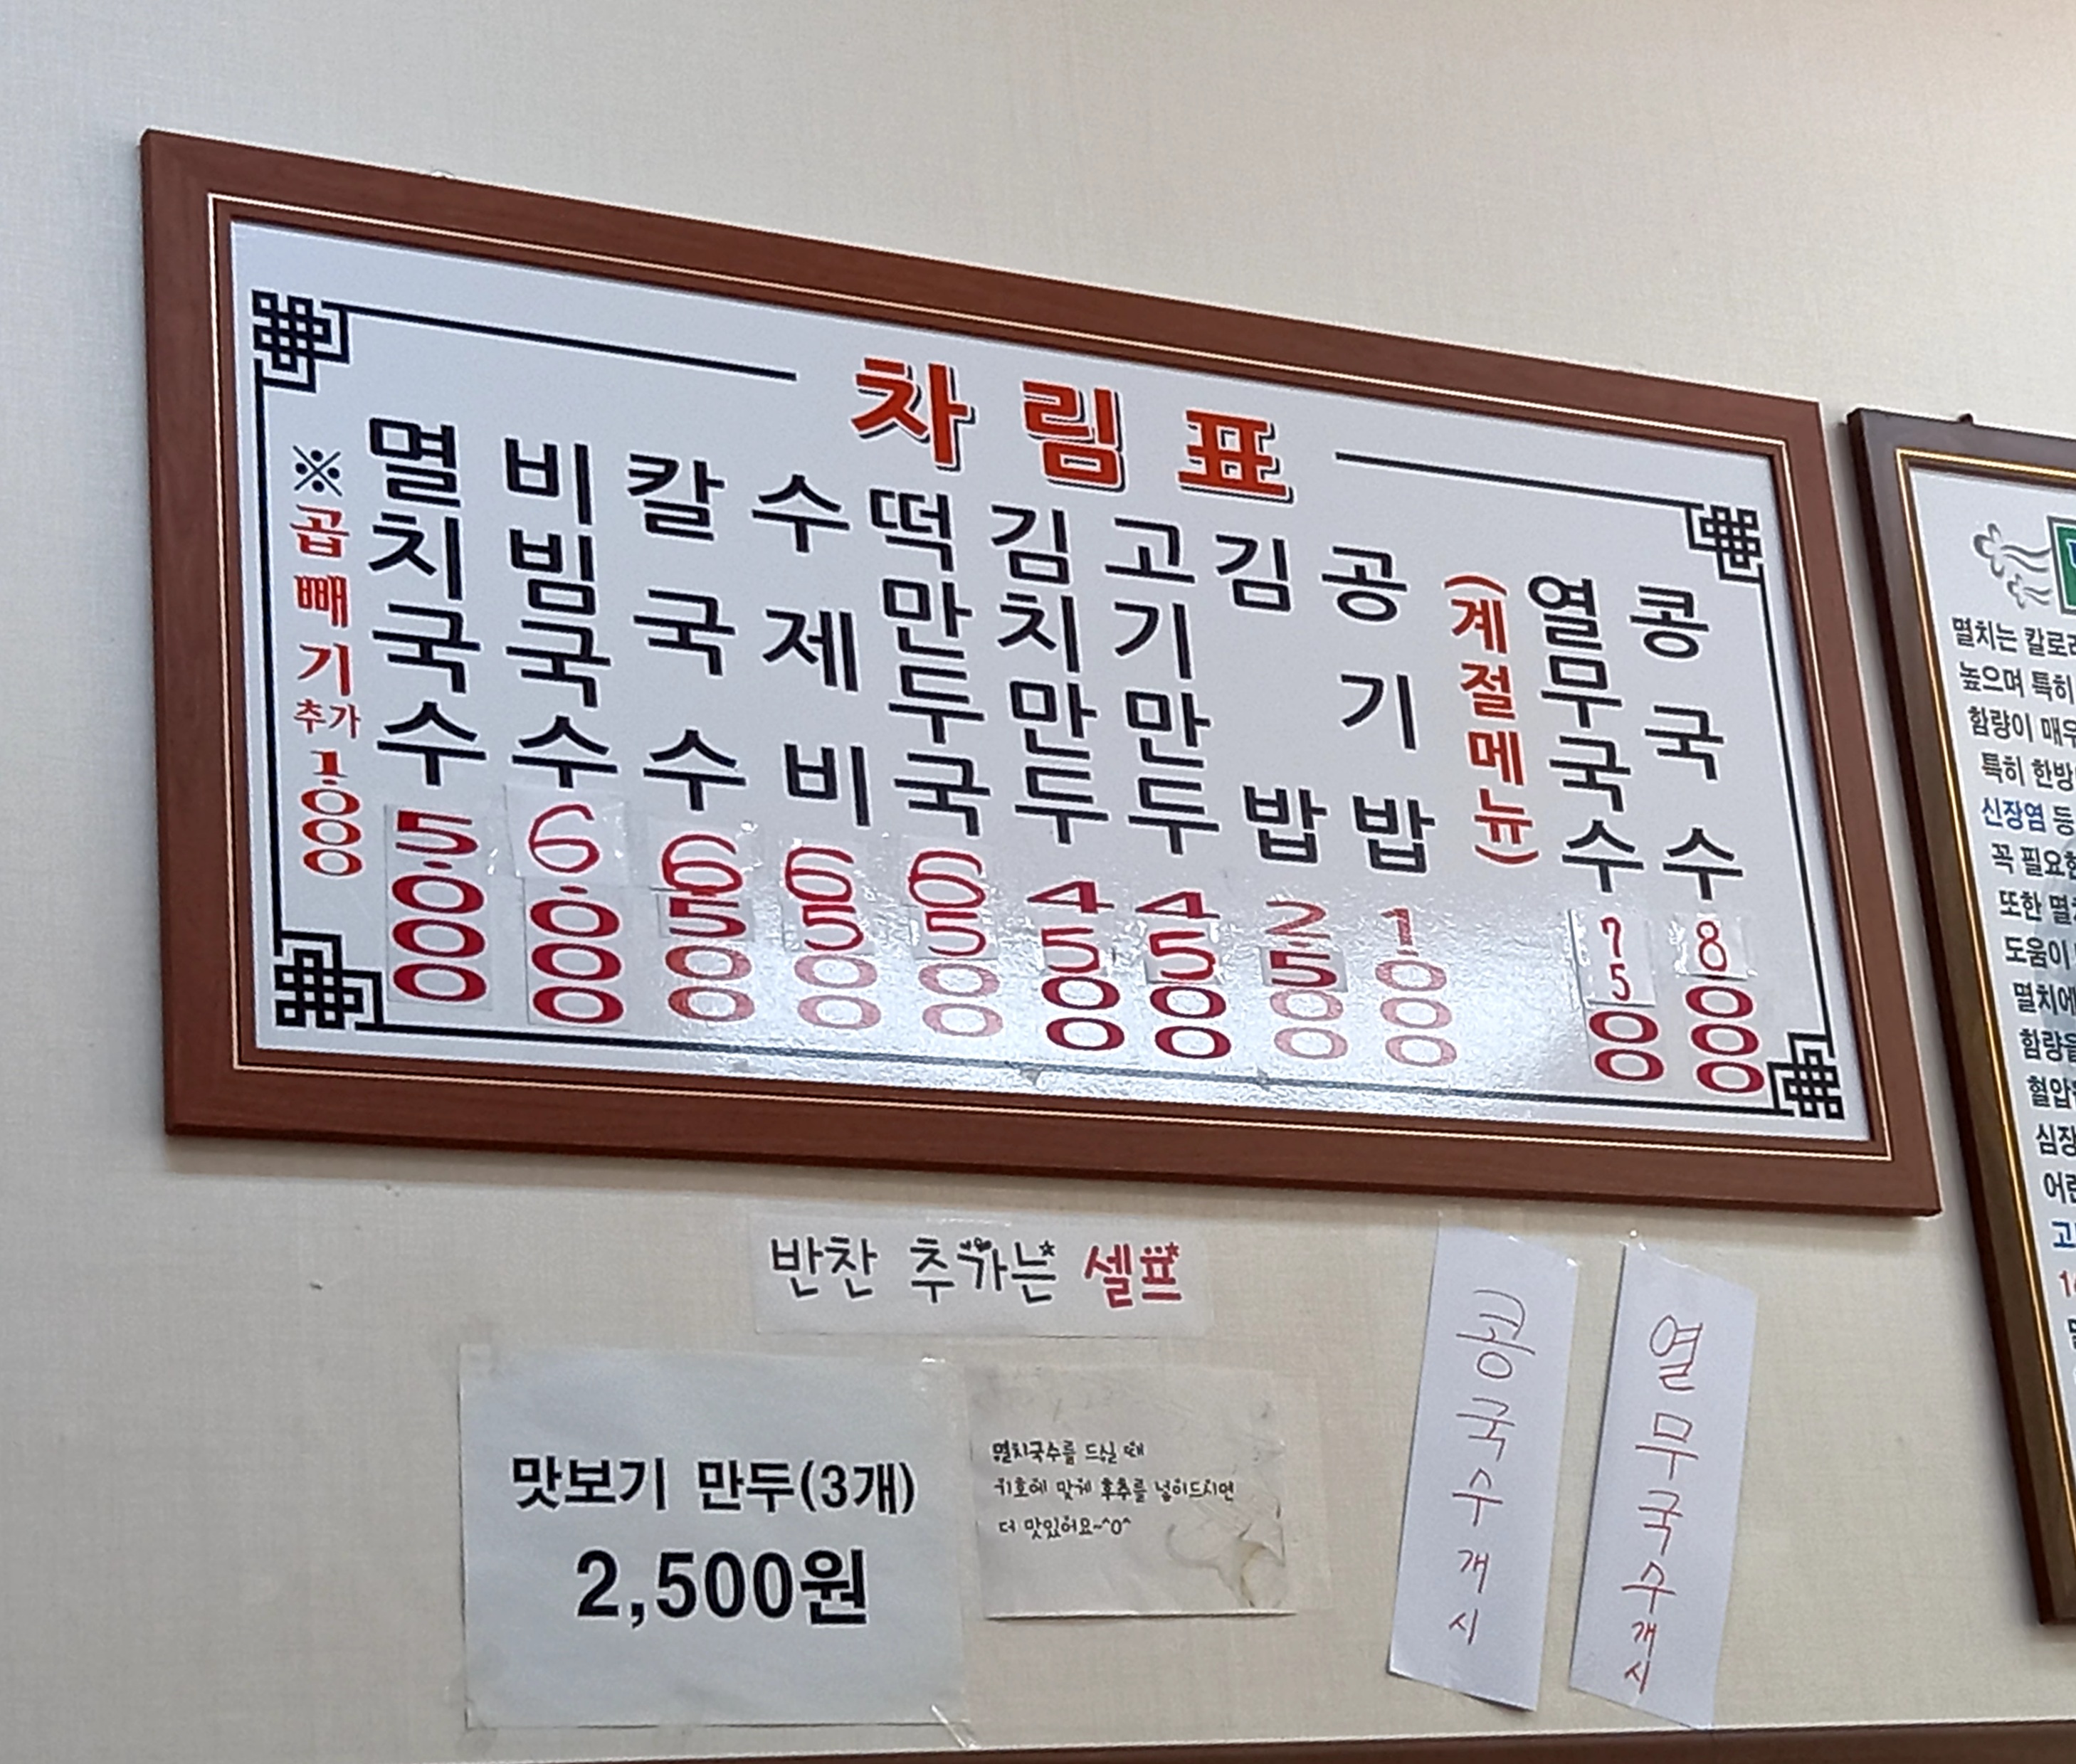 차림표
※곱빼기추가 1.000
멸치국수 5.000
비빔국수 6.000
칼국수 6500
수제비 6500
떡만두국 6500
김치만두 4500
고기만두 4500
김밥 2.500
공기밥 1.000
(계절메뉴)
열무국수 7500
콩국수 8000
반찬 추가는 셀프
맛보기 만두(3개)
2,500원
멸치국수를 드실 때
기호에 맞게 후추를 넣어드시면
더 맛있어요~^0^
콩국수개시
열무국수개시
멸치는
높으며 특히
함량이 매우
특히
신장염 등
꼭
또한
도움이
멸치에